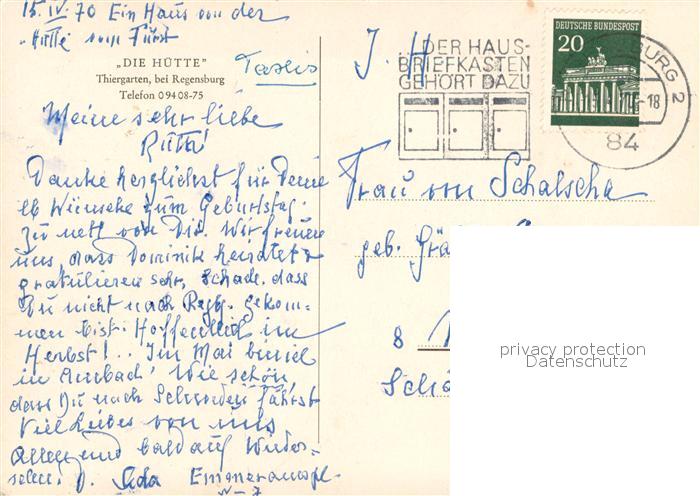 15.IV.70 Ein Haus von der
"Hütte" vom Fürst
Taxis
"DIE HÜTTE"
Thiergarten, bei Regensburg
Telefon 0 94 08-75
Meine sehr liebe
Ruth!
Danke herzlichst für Deine
lb Wünsche zum Geburtstag.
Zu nett von Dir. Wir freuen
uns, dass Dominik heiratet
gratulieren sehr, Schade, dass
Du nicht nach Regbg. gekom-
men bist. Hoffentlich im
Herbst!.. Im Mai bin ich
in Ambach! Wie schön,
dass Du nach Schweden fährst
Viel Liebes von uns
allen und bald auf Wieder-
sehen! D.
I. H
..DER HAUS-
BRIEFKASTEN
GEHÖRT DAZU
DEUTSCHE BUNDESPOST
20
BURG 2
-18
84
Frau von Schalscha
geb.
8
privacy protection
Datenschutz